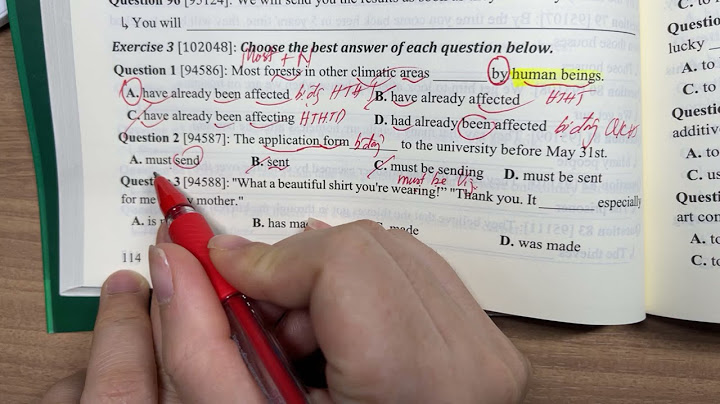 Question 90 [95124]: We will send you the results as soon as
L, You will
Exercise 3 [102048]: Choose the best answer of each question below.
Most + N
Question 1 [94586]: Most forests in other climatic areas __________ by human beings.
A. have already been affected bị động HTHT B. have already affected HTHT
C. have already been affecting HTHTD D. had already been affected bị động QKHT
Question 2 [94587]: The application form bị động to the university before May 31st.
A. must send B. sent C. must be sending D. must be sent
must be V
Question 3 [94588]: "What a beautiful shirt you're wearing!" "Thank you. It __________ especially
for me my mother."
A. is B. has made D. was made
114
C. to
Question
lucky
A. to
C. to
Question
additive
A. to
C. us
Question
art con
A. to
C. to